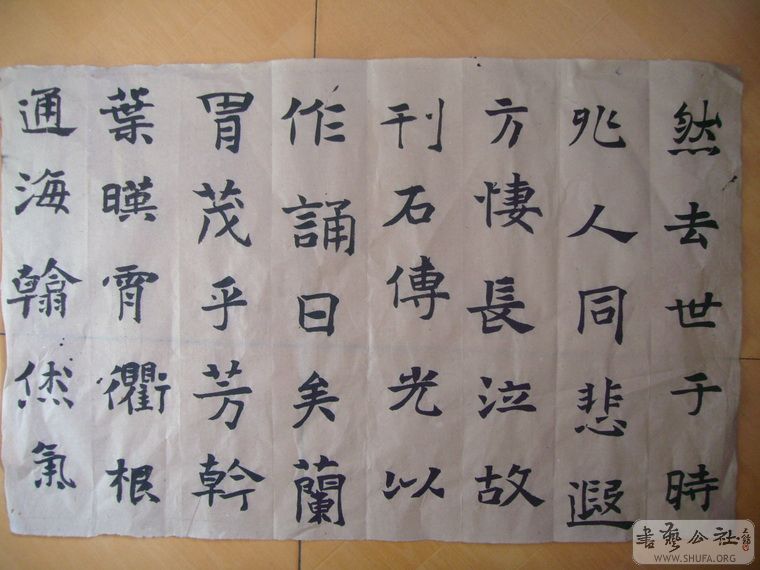 然去世于時
兆人同悲遐
方悽長泣故
刊石傳光以
作誦曰矣蘭
胄茂乎芳幹
葉暎霄衢根
通海翰烋氣
书艺公社
WWW.SHUFA.ORG